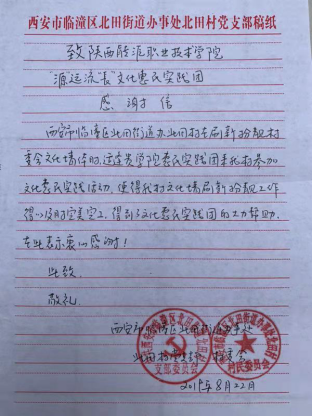 西安市临潼区北田街道办事处北田村党支部稿纸
致陕西能源职业技术学院
"源远流长"文化惠民实践团
感谢信
西安市临潼区北田街道办北田村在刷新扮靓村
委会文化墙体时,适逢贵学院惠民实践团来我村参加
文化惠民实践活动,使得我村文化墙刷新扮靓工作
得以及时完美完工,得到了文化惠民实践团的大力帮助,
在此表示衷心感谢!
此致
敬礼
西安市临潼区北田街道办事处
北田村党支部 村委会
支部委员会
村民委员会
2019年8月22日